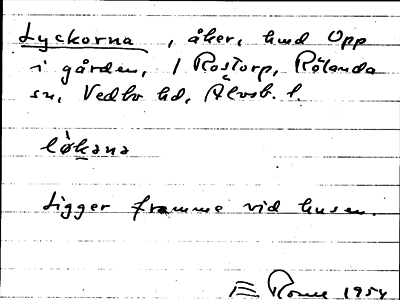 Lyckorna, åker, hmd Upp
i gården, / Rostorp, Rölanda
sn, Vedbo hd, Älvsb. l.
lø̀kana
Ligger framme vid husen.
1954